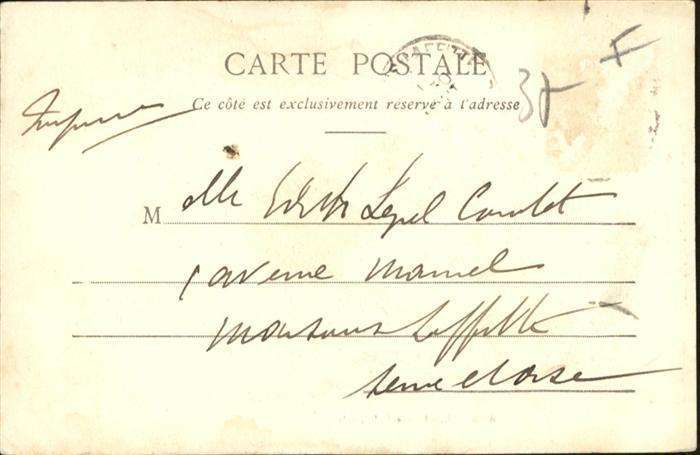 CARTE POSTALE
Ce côté est exclusivement réservé à l'adresse
35 F
M elle Edith Lepel Cointet
avenue
Maisons Laffitte
Seine et Oise